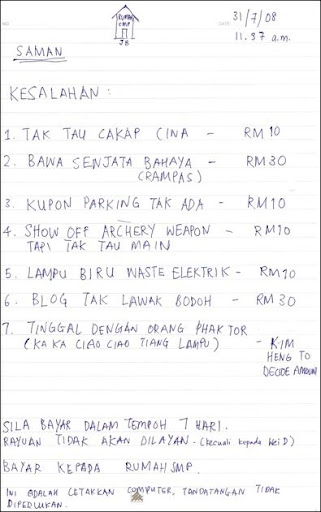 RUMAH
SMP
JB
NO.
DATE
31/7/08
11.37 a.m.
SAMAN
KESALAHAN :
1. TAK TAU CAKAP CINA - RM10
2. BAWA SENJATA BAHAYA - RM30
(RAMPAS)
3. KUPON PARKING TAK ADA - RM10
4. SHOW OFF ARCHERY WEAPON - RM10
TAPI TAK TAU MAIN
5. LAMPU BIRU WASTE ELEKTRIK - RM10
6. BLOG TAK LAWAK BODOH - RM30
7. TINGGAL DENGAN ORANG PHAK TOR
(KA KA CIAO CIAO TIANG LAMPU) - KIM
HENG TO
DECIDE AMOUN
SILA BAYAR DALAM TEMPOH 7 HARI.
RAYUAN TIDAK AKAN DILAYAN. (kecuali kepada Wei D)
BAYAR KEPADA RUMAH SMP.
INI ADALAH CETAKKAN COMPUTER, TANDATANGAN TIDAK
DIPERLUKAN.